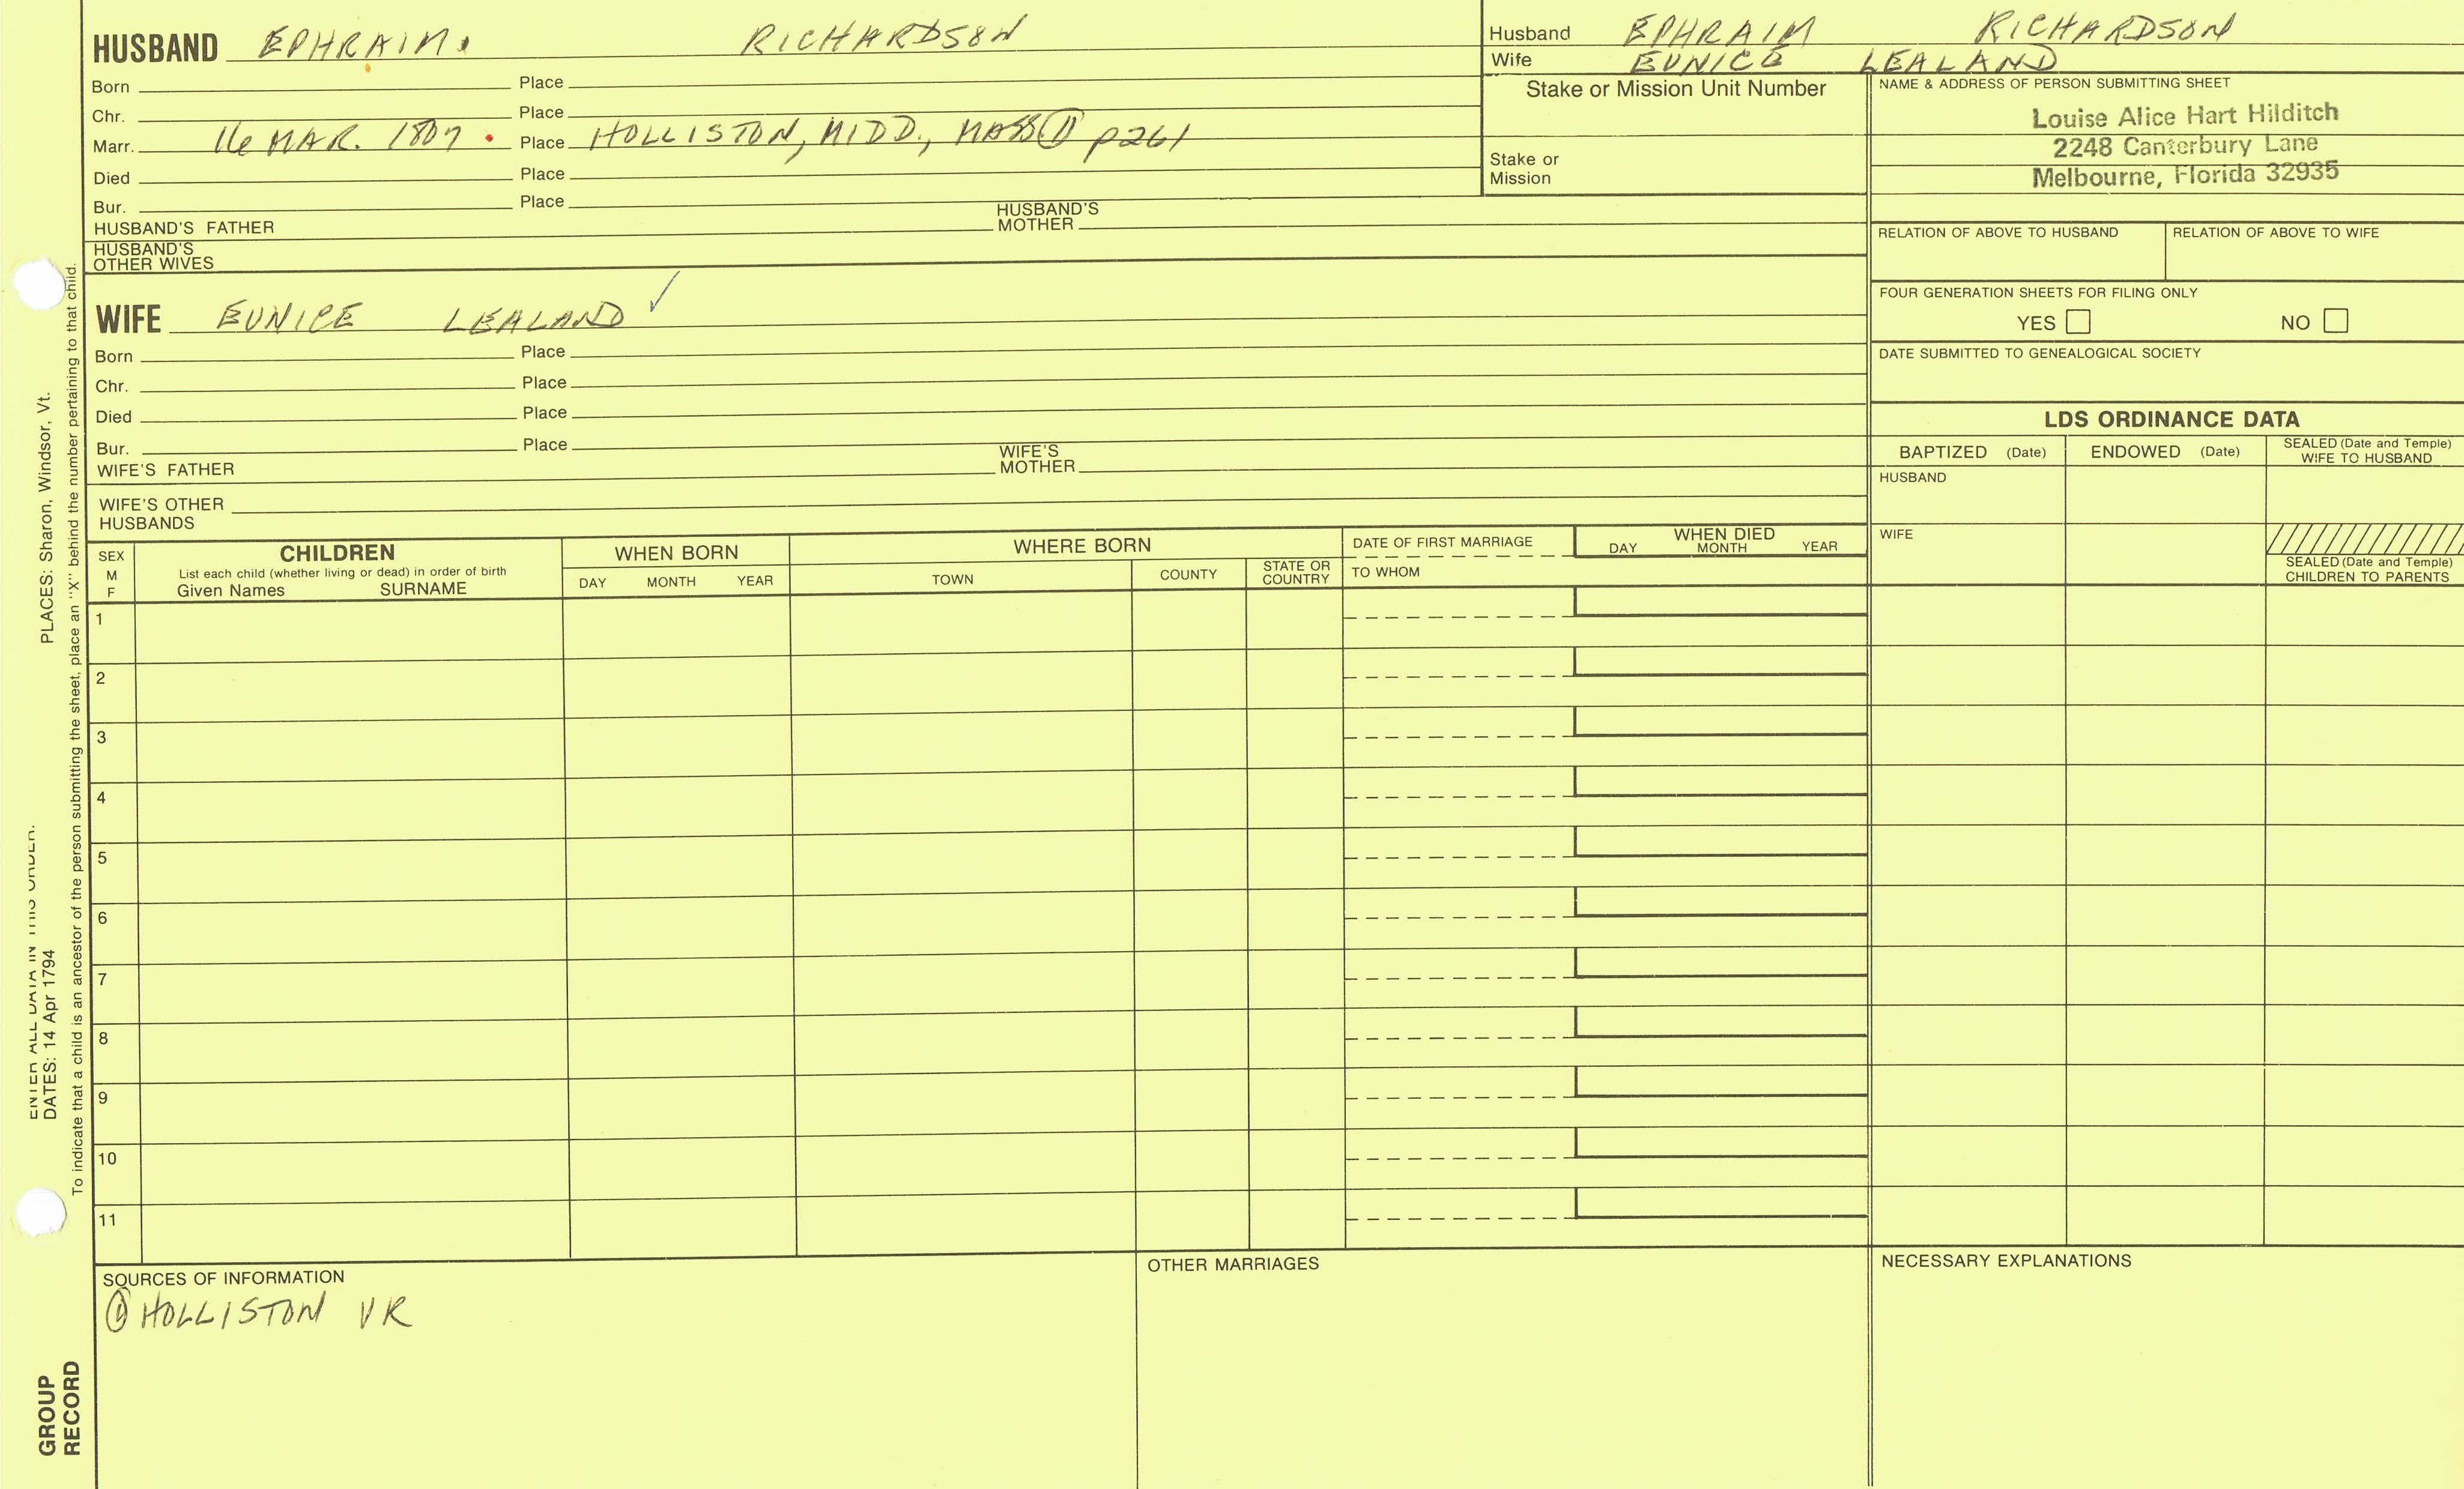 HUSBAND EPHRAIM. RICHARDSON
Born Place
Chr. Place
Marr. 16 MAR. 1807 Place HOLLISTON, MIDD., MASS ① p261
Died Place
Bur. Place
HUSBAND'S FATHER HUSBAND'S MOTHER
HUSBAND'S
OTHER WIVES
Husband EPHRAIM RICHARDSON
Wife EUNICE LEALAND
Stake or Mission Unit Number
Stake or
Mission
NAME & ADDRESS OF PERSON SUBMITTING SHEET
Louise Alice Hart Hilditch
2248 Canterbury Lane
Melbourne, Florida 32935
RELATION OF ABOVE TO HUSBAND RELATION OF ABOVE TO WIFE
FOUR GENERATION SHEETS FOR FILING ONLY
YES NO
DATE SUBMITTED TO GENEALOGICAL SOCIETY
WIFE EUNICE LEALAND ✓
Born Place
Chr. Place
Died Place
Bur. Place
WIFE'S FATHER WIFE'S MOTHER
WIFE'S OTHER
HUSBANDS
LDS ORDINANCE DATA
BAPTIZED (Date) ENDOWED (Date) SEALED (Date and Temple) WIFE TO HUSBAND
HUSBAND
WIFE
SEALED (Date and Temple)
CHILDREN TO PARENTS
SEX
M
F
CHILDREN
List each child (whether living or dead) in order of birth
Given Names SURNAME
WHEN BORN
DAY MONTH YEAR
WHERE BORN
TOWN COUNTY STATE OR COUNTRY
DATE OF FIRST MARRIAGE
TO WHOM
WHEN DIED
DAY MONTH YEAR
1
2
3
4
5
6
7
8
9
10
11
SOURCES OF INFORMATION
① HOLLISTON VR
OTHER MARRIAGES
NECESSARY EXPLANATIONS
ENTER ALL DATA IN THIS ORDER:
DATES: 14 Apr 1794 PLACES: Sharon, Windsor, Vt.
To indicate that a child is an ancestor of the person submitting the sheet, place an "X" behind the number pertaining to that child.
GROUP
RECORD